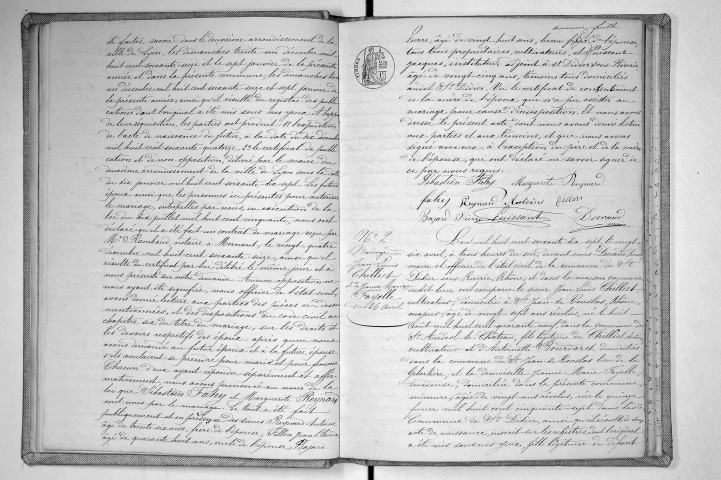 et faites, savoir dans le deuxième arrondissement de la
ville de Lyon, les dimanches trente un décembre mil
huit cent soixante-seize et le sept janvier de la présente
année et dans la présente commune, les dimanches trente
un décembre mil huit cent soixante seize et sept janvier de
la présente année, ainsi qu'il résulte du registre des publi-
cations dont l'original a été mis sous nos yeux. A l'appui
de leur réquisition, les parties ont produit 1° l'expédition
de l'acte de naissance du futur, à la date du dix décembre
mil huit cent quarante quatorze, 2° le certificat de publi-
cation et de non opposition, délivré par le maire du
deuxième arrondissement de la ville de Lyon sous la date
du dix janvier mil huit cent soixante-dix sept. Les futurs
époux, ainsi que les personnes ici présentes pour autoriser
le mariage interpellés par nous en exécution de la
loi du dix juillet mil huit cent cinquante, nous ont
déclaré qu'il a été fait un contrat de mariage reçu par
Me Rambaud, notaire à Mornant, le vingt quatre
décembre mil huit cent soixante seize, ainsi qu'il
résulte du certificat par lui délivré le même jour et à
nous présenté au même moment. Aucune opposition ne
nous ayant été signifiée, nous officier de l'état civil,
avons donné lecture aux parties des pièces ci-dessus
mentionnées, et des dispositions du code civil au
chapitre six du titre du mariage, sur les droits et
les devoirs respectifs des époux après quoi nous
avons demandé au futur époux et à la future épouse
s'ils veulent se prendre pour mari et pour femme
Chacun d'eux ayant répondu séparément et affir-
mativement, nous avons prononcé au nom de la
loi que Sébastien Fahy et Marguerite Reynard
sont unis par le mariage. Le tout a été fait
publiquement et en présence des sieurs Reynard Antoine
âgé de trente six ans, frère de l'épouse,
âgé de quarante huit ans, de l'épouse, Bajard
Pierre, âgé de vingt huit ans, beau frère de l'épouse,
tous trois propriétaires, cultivateurs, et Puissant
Jacques, instituteur adjoint à St Didier sous Riverie
âgé de vingt cinq ans, témoins tous domiciliés
audit St Didier. Vu le certificat de consentement
de la mère de l'époux qui n'a pu assister au
mariage pour cause d'indisposition. Et nous avons
dressé le présent acte dont nous avons donné lecture
aux parties et aux témoins, et que nous avons
signé avec eux, à l'exception du père et de la mère
de l'épouse, qui ont déclaré ne savoir signer de
ce par nous requis.
Sébastien Fahy Marguerite Reynard
Fahy Reynard Antoine
Bajard Pierre Puissant Durand
N° 2
Mariage
Jean Louis
Thillet
et de Jeanne Marie
Fayolle
26 avril
L'an mil huit cent soixante dix sept, le vingt
six avril, à trois heures du soir, devant nous Durand
maire et officier de l'état civil de la commune de St
Didier sous Riverie, Rhône, et dans la maison commune
dudit lieu, ont comparu le sieur Jean Louis Thillet
cultivateur, domicilié à St Jean de Touslas, Rhône,
majeur, âgé de vingt sept ans révolus, né le huit
août mil huit cent quarante neuf, dans la commune de
St Andéol le Château, fils légitime de Thillet
cultivateur et d'Antoinette Poussard domiciliés
dans la commune de St Jean de Touslas lieu de la
et la demoiselle Jeanne Marie Fayolle,
domiciliée dans la présente commune,
mineure, âgée de vingt ans révolus, née le quinze
février mil huit cent cinquante-sept dans la dite
commune de St Didier, ainsi qu'il résulte de son
acte de naissance, inscrit sur les registres dont l'original
a été mis sous nos yeux, fille légitime de défunt